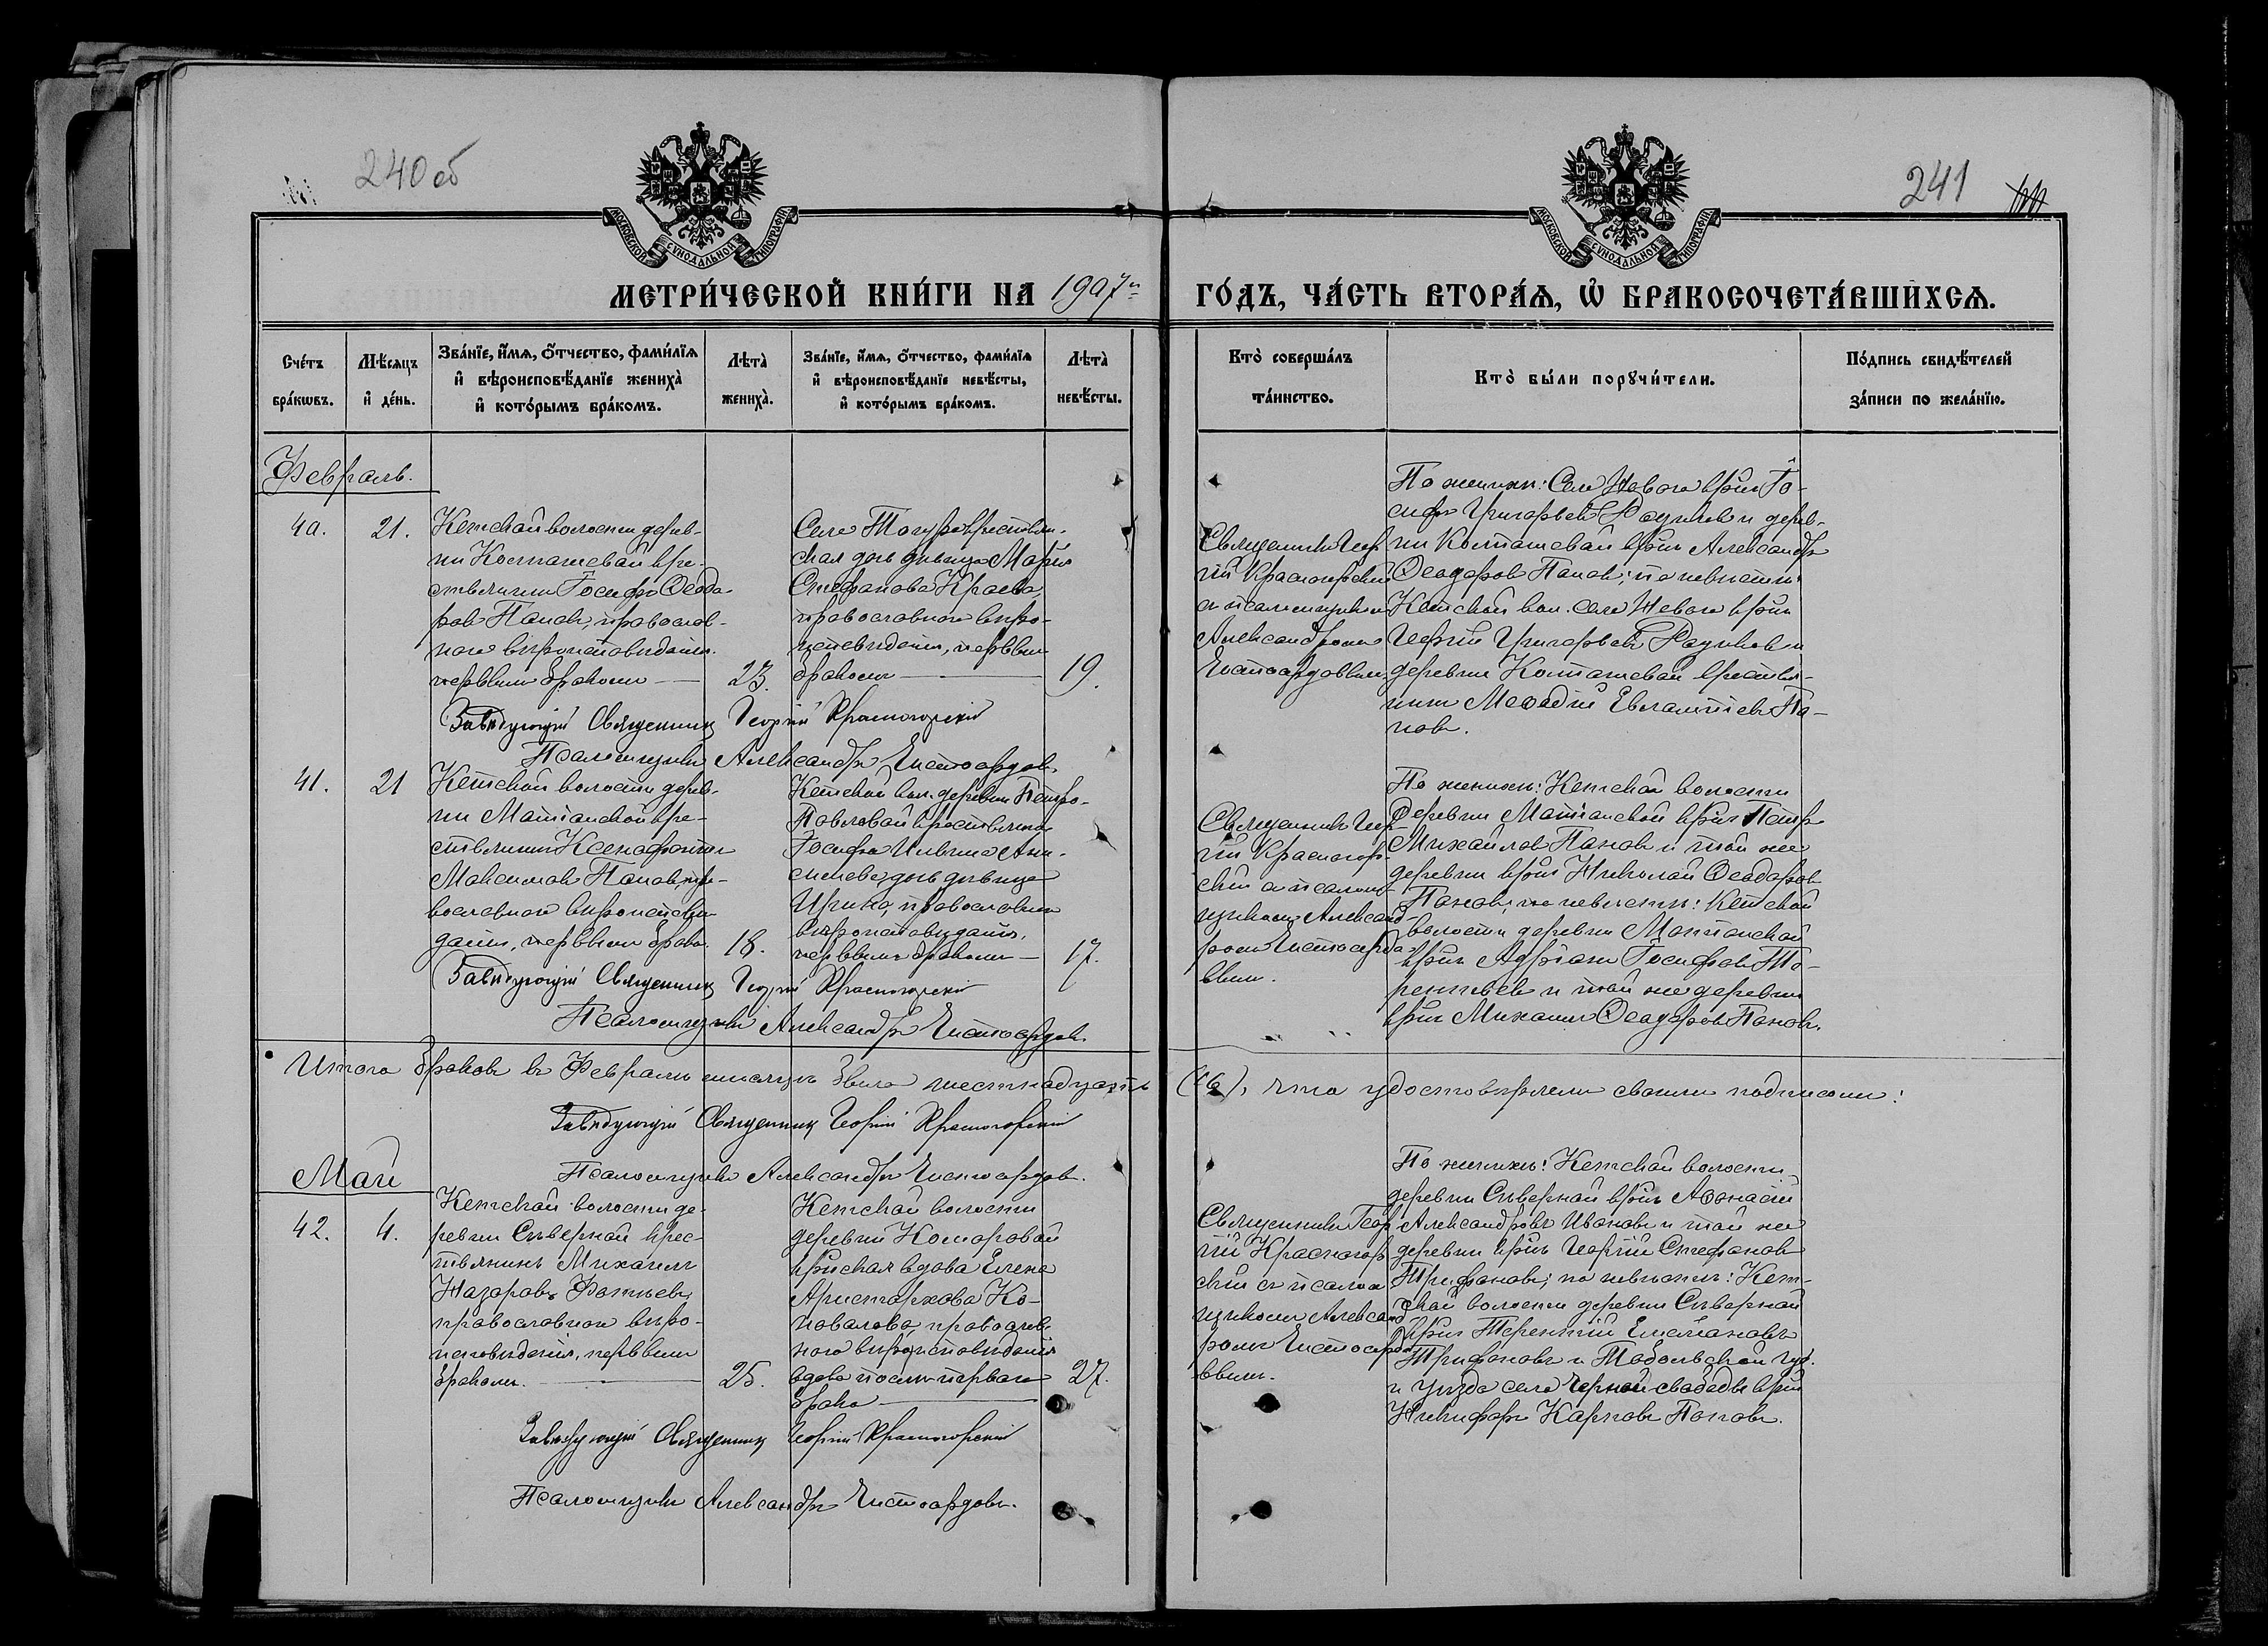 240 об
241
МОСКОВСКОЙ СѴНОДАЛЬНОЙ ТИПОГРАФІИ.
МОСКОВСКОЙ СѴНОДАЛЬНОЙ ТИПОГРАФІИ.
МЕТРИ́ЧЕСКОЙ КНИ́ГИ НА 1907й ГО́ДЪ, ЧА́СТЬ ВТОРА́Ѧ, Ѿ БРАКОСОЧЕТА́ВШИХСѦ.
Сче́тъ
бра́кωвъ.
Мѣ́сѧцъ
и҆ де́нь.
Зва́нїе, и҆́мѧ, ѻ҆́тчество, фами́лїѧ
и҆ вѣроисповѣ́данїе жениха̀
и҆ кото́рымъ бра́комъ.
Лѣта̀
жениха̀.
Зва́нїе, и҆́мѧ, ѻ҆́тчество, фами́лїѧ
и҆ вѣроисповѣ́данїе невѣ́сты,
и҆ кото́рымъ бра́комъ.
Лѣта̀
невѣ́сты.
Кто̀ соверша́лъ
та́инство.
Кто̀ бы́ли порꙋчи́тели.
По́дпись свидѣ́телей
за́писи по жела́нїю.
Февраль.
40.
21.
Кетской волости дерев-
ни Колпашевой кре-
стьянинъ Іосифъ Ѳеодо-
ровъ Пановъ, православ-
наго вѣроисповѣданія.
первымъ бракомъ —
23.
Села Тогура крестьян-
ская дочь дѣвица Марія
Стефанова Краева,
православнаго вѣро-
исповѣданія, первымъ
бракомъ —
19.
Священникъ Геор-
гій Красногорскій
съ псаломщикомъ
Александромъ
Чистосердовымъ
По женихѣ: Села Новаго крнъ Іо-
сифъ Григорьевъ Родиковъ и дерев-
ни Колпашевой крнъ Александръ
Ѳеодоровъ Пановъ; по невѣстѣ:
Кетской вол. села Новаго крнъ
Георгій Григорьевъ Родиковъ и
деревни Колпашевой крестья-
нинъ Меѳодій Евлампіевъ Па-
новъ.
Завѣдующій Священникъ Георгій Красногорскій
Псаломщикъ Александръ Чистосердовъ
41.
21
Кетской волости дерев-
ни Матьянской кре-
стьянинъ Ксенофонтъ
Максимовъ Пановъ, пра-
вославнаго вѣроисповѣ-
данія, первымъ брако.
18.
Кетской вол. деревни Петро-
Павловой крестьянина
Іосифа Ильина Ани-
симова дочь дѣвица
Ирина, православнаго
вѣроисповѣданія,
первымъ бракомъ —
17.
Священникъ Геор-
гій Красногор-
скій съ псалом-
щикомъ Александ-
ромъ Чистосердо-
вымъ.
По женихѣ: Кетской волости
деревни Матьянской крнъ Петръ
Михайловъ Пановъ и той же
деревни крнъ Николай Ѳеодоровъ
Пановъ; по невѣстѣ: Кетской
волости деревни Матьянской
крнъ Адріанъ Іосифовъ Те-
рентьевъ и той же деревни
крнъ Михаилъ Ѳеодоровъ Пановъ.
Завѣдующій Священникъ Георгій Красногорскій
Псаломщикъ Александръ Чистосердовъ
Итого браковъ въ Февралѣ мѣсяцѣ было шестнадцать (16), что удостовѣряемъ своими подписями:
Завѣдующій Священникъ Георгій Красногорскій
Псаломщикъ Александръ Чистосердовъ.
Май
42.
4.
Кетской волости де-
ревни Сѣверной крес-
тьянинъ Михаилъ
Назаровъ Фотьевъ,
православнаго вѣро-
исповѣданія, первымъ
бракомъ. —
25.
Кетской волости
деревни Комаровой
крнская вдова Елена
Аристархова Ко-
новалова, православ-
наго вѣроисповѣданія
вдова послѣ перваго
брака —
27.
Священникъ Геор-
гій Красногор-
скій съ псалом-
щикомъ Александ-
ромъ Чистосердо-
вымъ.
По женихѣ: Кетской волости
деревни Сѣверной крнъ Аѳанасій
Александровъ Ивановъ и той же
деревни крнъ Георгій Стефановъ
Трифоновъ; по невѣстѣ: Кет-
ской волости деревни Сѣверной
крнъ Терентій Емельяновъ
Трифоновъ и Тобольской губ.
и уѣзда села Черной слободы крнъ
Никифоръ Карповъ Поповъ.
Завѣдующій Священникъ Георгій Красногорскій
Псаломщикъ Александръ Чистосердовъ.